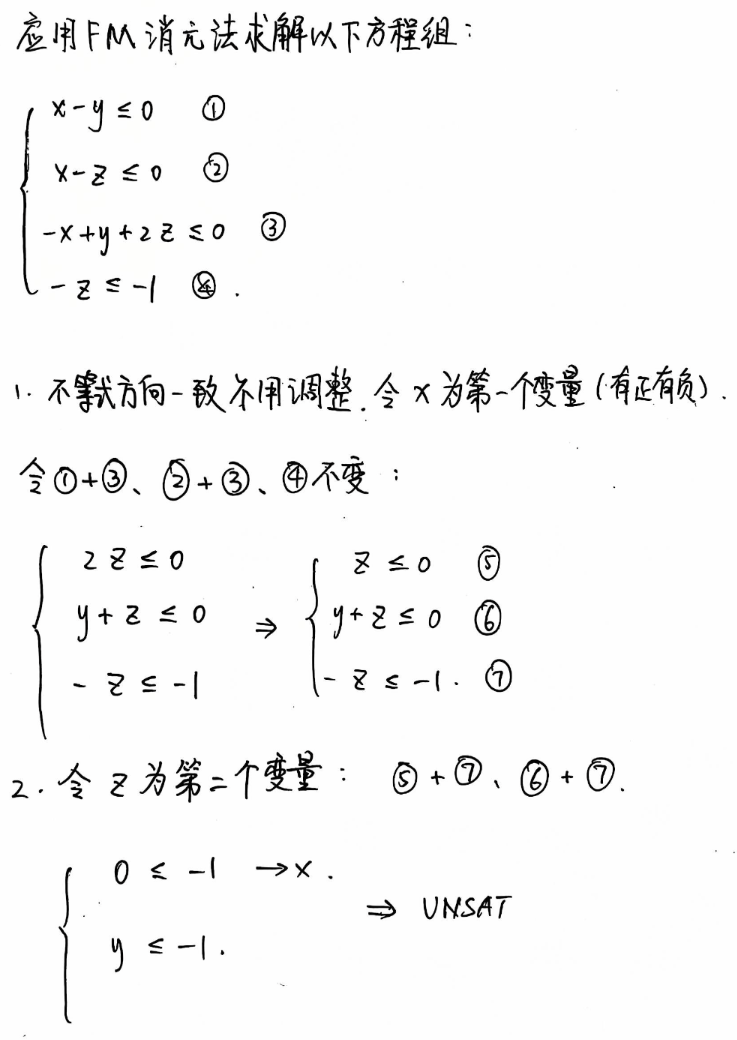 应用FM消元法求解以下方程组：
x-y≤0 ①
x-z≤0 ②
-x+y+2z≤0 ③
-z≤-1 ④.
1. 不等式方向一致不用调整.令x为第一个变量(有正有负).
令①+③、②+③、④不变：
2z≤0 z≤0 ⑤
y+z≤0 ⇒ y+z≤0 ⑥
-z≤-1 -z≤-1. ⑦
2. 令z为第二个变量： ⑤+⑦、⑥+⑦.
0≤-1 →x.
⇒ UNSAT
y≤-1.